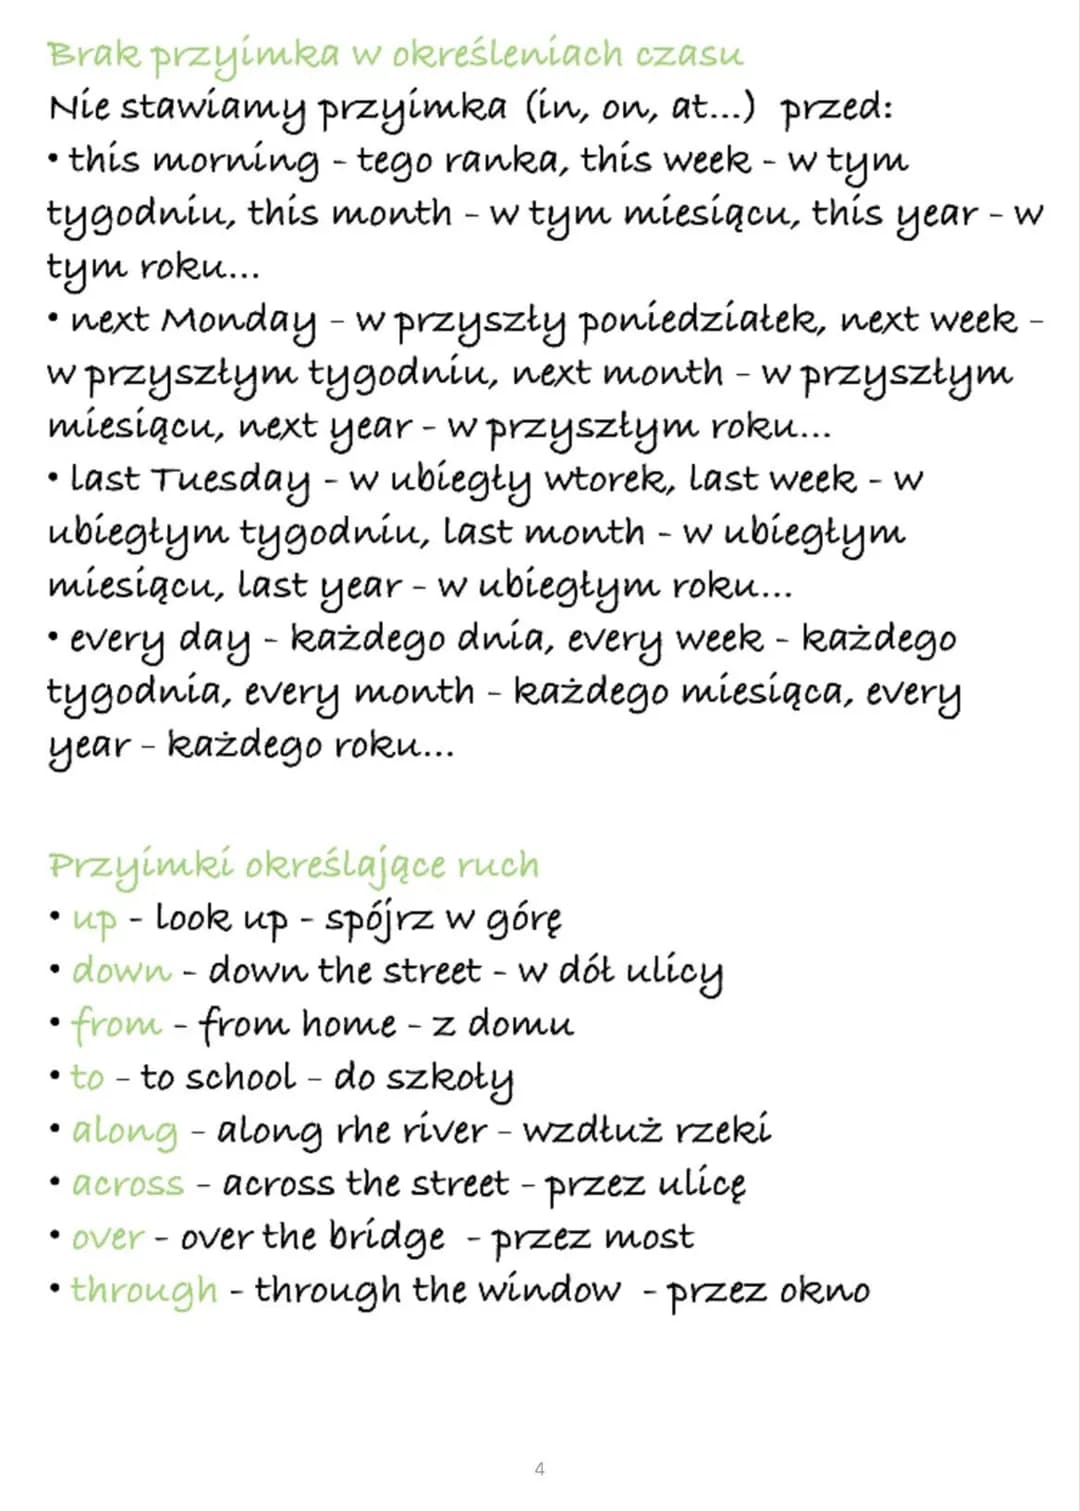 Brak przyimka w określeniach czasu
Nie stawiamy przyimka (in, on, at...) przed:
• this morning - tego ranka, this week - w tym
tygodniu, this month - w tym miesiącu, this year - w
tym roku...
• next Monday - w przyszły poniedziałek, next week -
w przyszłym tygodniu, next month - w przyszłym
miesiącu, next year - w przyszłym roku...
• last Tuesday - w ubiegły wtorek, last week - w
ubiegłym tygodniu, last month - w ubiegłym
miesiącu, last year - w ubiegłym roku...
• every day - każdego dnia, every week - każdego
tygodnia, every month - każdego miesiąca, every
year - każdego roku...
Przyimki określające ruch
• up - look up - spójrz w górę
• down - down the street - w dół ulicy
• from - from home - z domu
• to - to school - do szkoły
• along - along rhe river - wzdłuż rzeki
• across - across the street - przez ulicę
• over - over the bridge - przez most
• through - through the window - przez okno
4